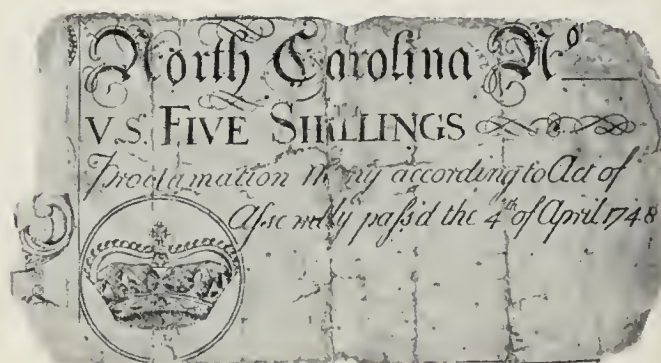 North Carolina Nº
V.S. FIVE SHILLINGS
Proclamation Mony according to Act of
Assembly paſs'd the 4th of April 1748